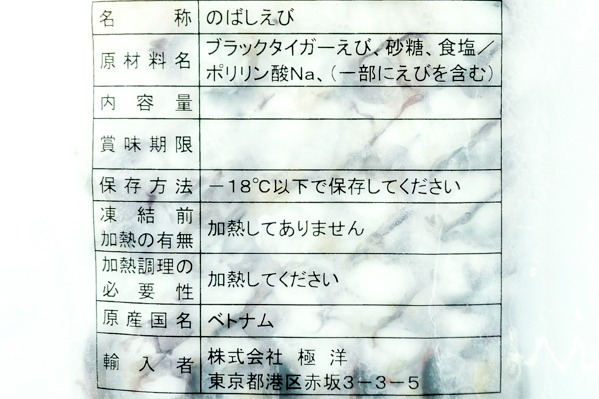 名称 のばしえび
原材料名 ブラックタイガーえび、砂糖、食塩／
ポリリン酸Na、(一部にえびを含む)
内容量
賞味期限
保存方法 －18℃以下で保存してください
凍結前
加熱の有無 加熱してありません
加熱調理の
必要性 加熱してください
原産国名 ベトナム
輸入者 株式会社 極洋
東京都港区赤坂3－3－5